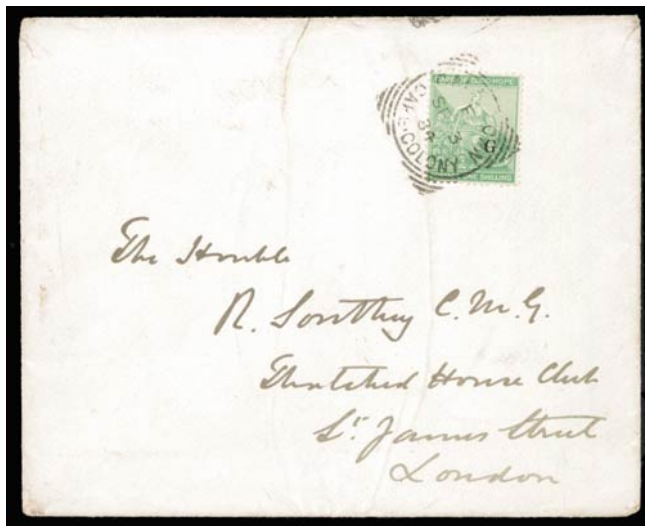 CAPE OF GOOD HOPE
G
ONE SHILLING
CAPE TOWN
SP 3
84
CAPE·COLONY
The Honble
R. Southey C.M.G.
Thatched House Club
St. James Street
London